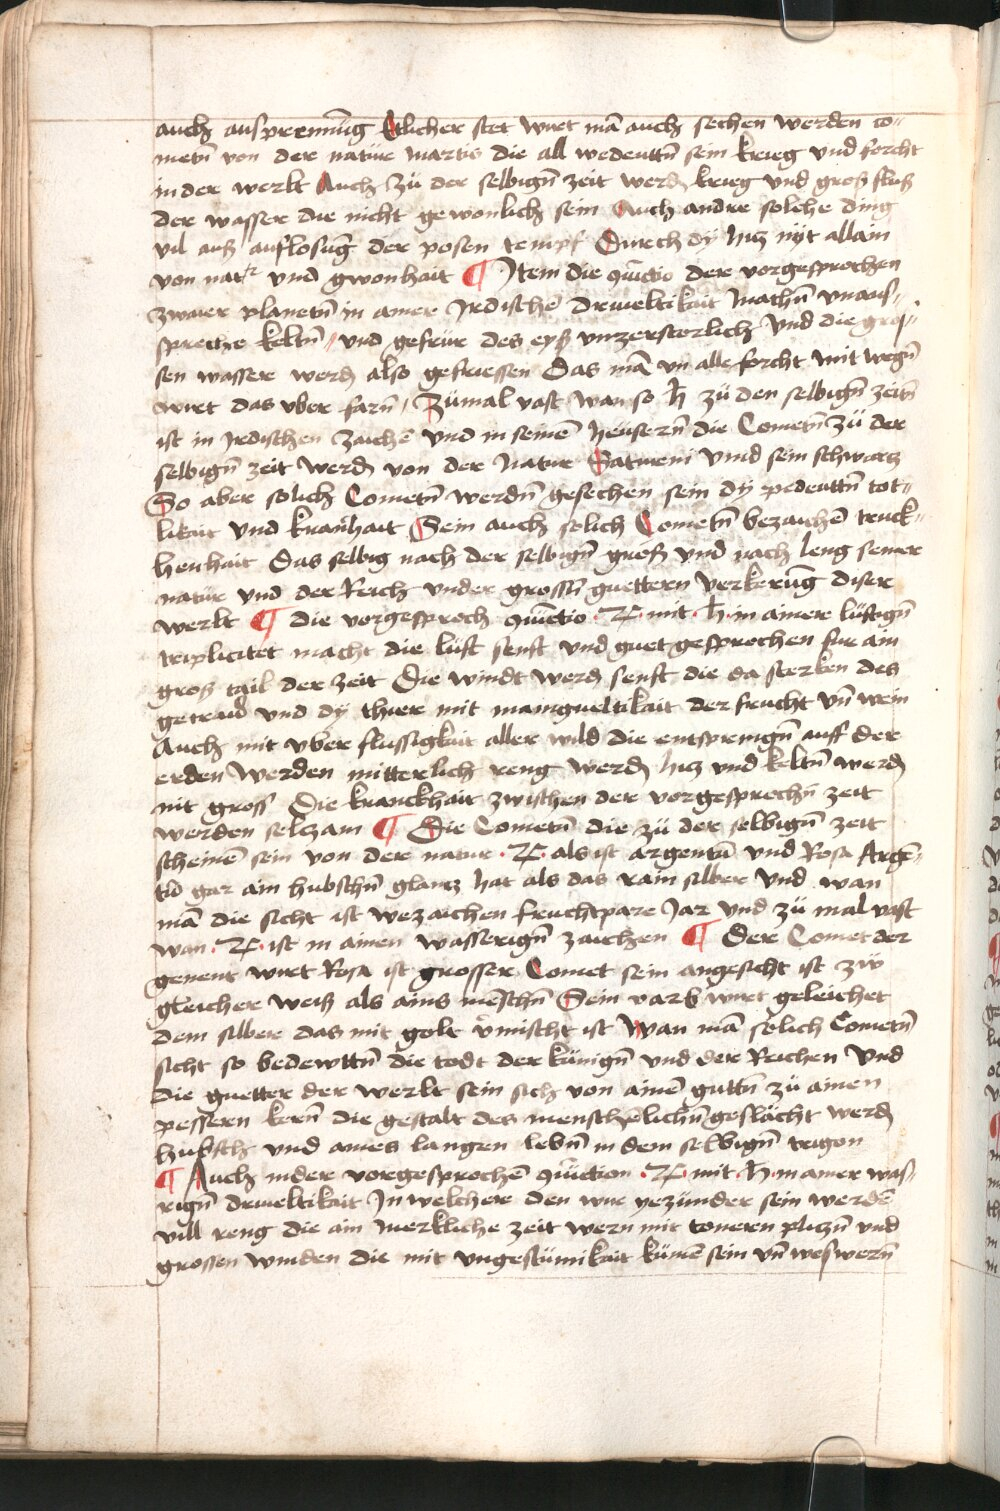 auch ausprennūg Etlicher stet wirt mā auch sechen werden co-
metñ von der natür martis die all wedeuttñ sein krieg vnd forcht
in der werlt Auch zü der selbigñ zeit werdñ krieg vnd groß fluß
der wasser die nicht gewonlich sein Auch andre solche ding
vil auß auflosūg der posen tempf Durch dy hicz nyt allain
von natr vnd gwonhait ¶ Jtem die 9iūctio der vorgesprochen
zwaier planetñ in ainer Jrdischē driueltikait machñ vnauß-
sprecze keltñ / vnd gefrür des eyß vnzerstorlich vnd die gros-
sen wasser werdñ also gefriessen Das mā an alle forcht mit wegñ
wirt das vber farñ / Zümal vast wan so ♄ zü den selbigñ zeitñ
ist in Jrdischen zaichē vnd in seinē heusernn die Cometñ zü der
selbigñ zeit werdñ von der natur Saturni vnnd sein schwarcz
So aber solich Cometñ werdñ gesechen sein dy pedeuttñ tot-
likait vnd kranhait Sein auch solich Cometñ bezaichē truck-
henhait Das selbig nach der selbigñ groß vnd nach leng seiner
natür vnd der Reich vnder grossñ guettern verkerūg diser
werlt ¶ die vorgesproch 9iūctio · ♃ · mit · ♄ · in ainer lüftigñ
triplicitet macht die lüft senft vnd guet gesprochen fur ain
groß tail der zeit Die windt werdñ senft die da sterken des
getraid vnd dy thier mit manigueltikait der frucht vñ wein
Auch mit vber flussigkait aller wild die entspringñ auff der
erden Werden mitterlich reng werdñ hicz vnd keltñ werdñ
nit gross Die kranckhait zwischen der vorgesprochñ zeit
werden selczam ¶ Die Cometñ die zü der selbigñ zeit
scheinē sein von der natur · ♃ · als ist argentū vnd Rosa Argē-
tū gar ain hubschñ glancz hat als das rain silber vnd wan
mā die sicht ist wezaichen fruchtpare Jar vnd zü mal vast
wan · ♃ · ist in ainen wasserigñ zaichen ¶ Der Comet der
genent wirt Rosa ist grosser Comet sein angesicht ist zw
gleicher weiß als ains mēschñ Sein varb wirt geleichet
dem silber das mit golt vmischt ist Wan mā solich Cometñ
sicht so bedewttñ die todt der künigñ vnd der Reichen Vnd
die guetter der werlt sein sich von ainē guttñ zü ainen
pessern kern̄ die gestalt des menschelichñ geslächt werdñ
hubsch vnd aines langen lebñ in dem selbigñ trigon
¶ Auch inder vorgesprochē 9iūction · ♃ · mit · ♄ · in ainer was-
rigñ driueltikait Jn welcher den wir yezünder sein werdē
vill reng die ain merkliche zeit wern mit tonern pliczñ vnd
grossen winden die mit vngestümikait kümē sein vñ weswern̄